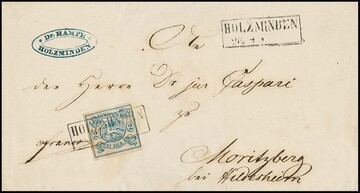 Dr HAMPE
HOLZMINDEN
HOLZMINDEN
An
den Herrn Dr jur Caspari
zu
HO N
franco
Moritzberg
bei Hildesheim